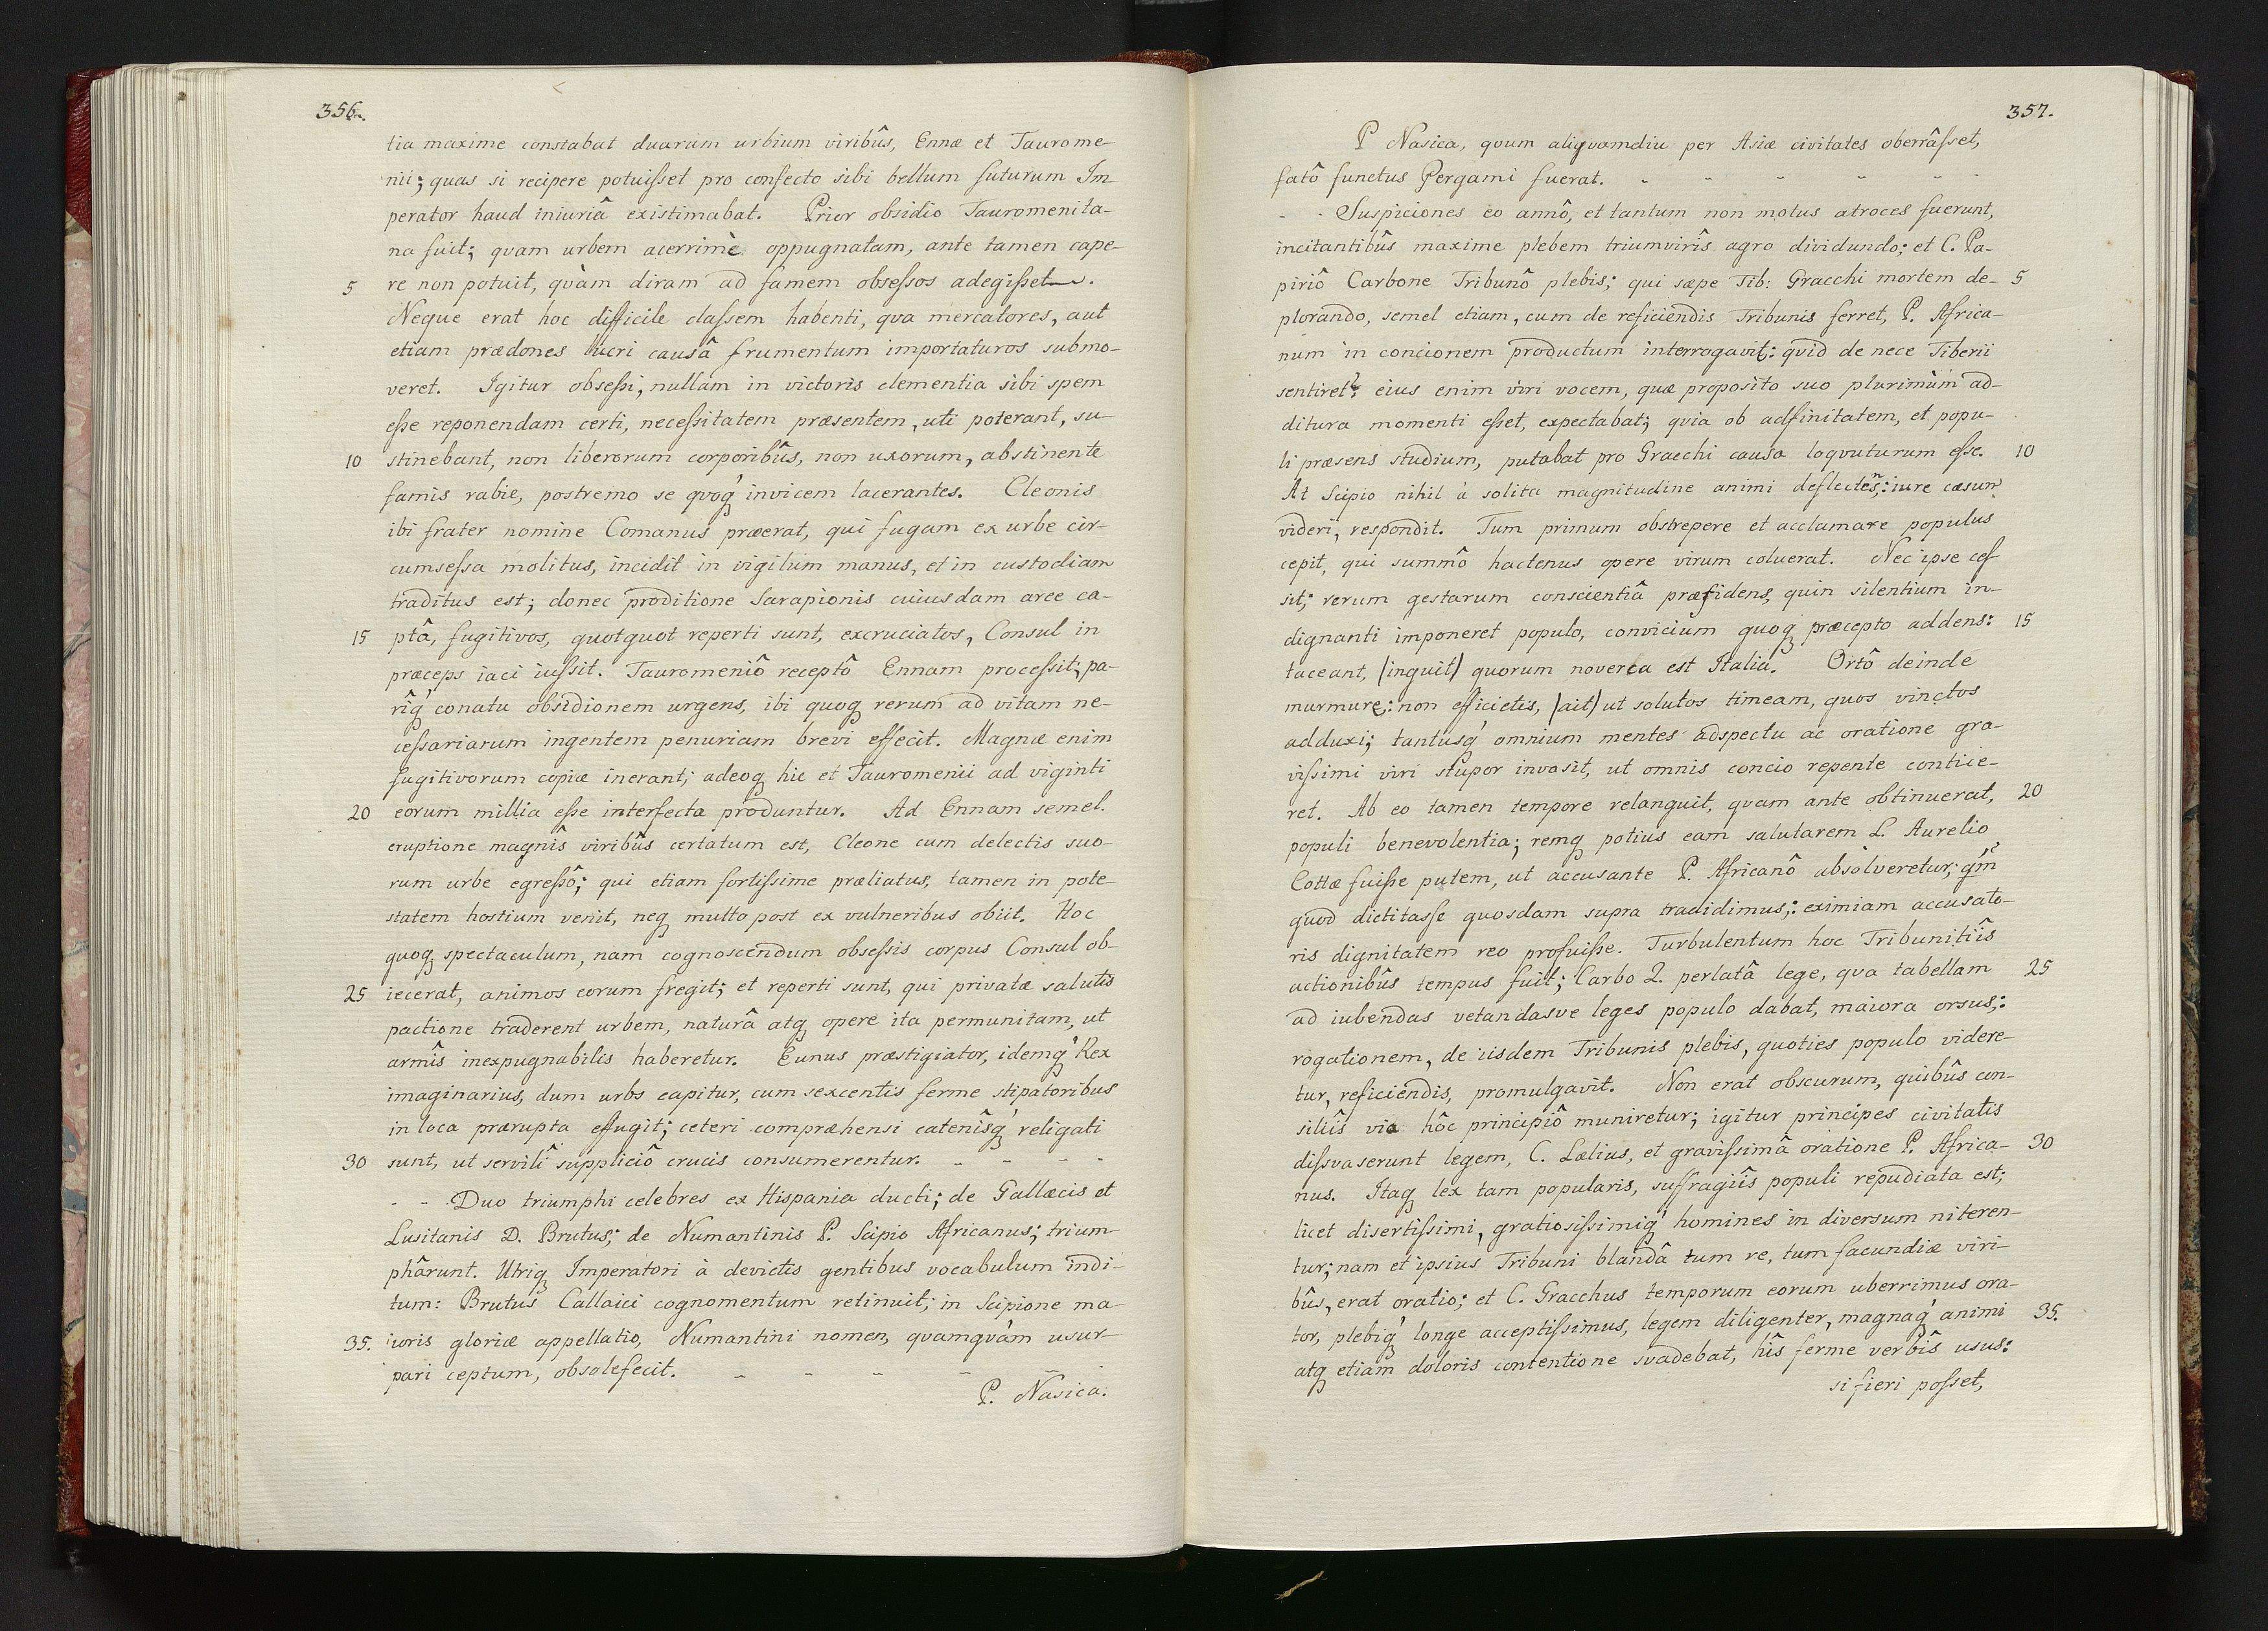 356.
tia maxime constabat duarum urbium viribûs, Ennæ et Taurome-
nii; quas si recipere potuisset pro confecto sibi bellum futurum Im-
perator haud iniuriâ existimabat. Prior obsidio Tauromenita-
na fuit; qvam urbem acerrimè oppugnatam, ante tamen cape-
5 re non potuit, qvàm diram ad famem obsessos adegisset.
Neque erat hoc difficile classem habenti, qva mercatores, aut
etiam prædones lucri causâ frumentum importaturos submo-
veret. Igitur obsessi, nullam in victoris clementia sibi spem
esse reponendam certi, necessitatem præsentem, uti poterant, su-
10 stinebant, non liberorum corporibûs, non uxorum, abstinente
famis rabie, postremo se qvoq́ invicem lacerantes. Cleonis
ibi frater nomine Comanus præerat, qui fugam ex urbe cir-
cumsessa molitus, incidit in vigilum manus, et in custodiam
traditus est; donec proditione Sarapionis cuiusdam arce ca-
15 ptâ, fugitivos, quotquot reperti sunt, excruciatos, Consul in
præceps iaci iussit. Tauromeniô receptô Ennam processit; pa-
rîq́ conatu obsidionem urgens, ibi quoq rerum ad vitam ne-
cessariarum ingentem penuriam brevi effecit. Magnæ enim
fugitivorum copiæ inerant; adeoq hic et Tauromenii ad viginti
20 eorum millia esse interfecta produntur. Ad Ennam semel
eruptione magnîs viribûs certatum est, Cleone cum delectis suo-
rum urbe egressô; qui etiam fortissime præliatus, tamen in pote-
statem hostium venit, neq multo post ex vulneribus obiit. Hoc
quoq spectaculum, nam cognoscendum obsessis corpus Consul ob-
25 iecerat, animos eorum fregit; et reperti sunt, qui privatæ salutis
pactione traderent urbem, naturâ atq opere ita permunitam, ut
armîs inexpugnabilis haberetur. Eunus præstigiator, idemq́ Rex
imaginarius, dum urbs capitur, cum sexcentis ferme stipatoribus
in loca prærupta effugit; ceteri compræhensi catenîsq́ religati
30 sunt, ut servilî suppliciô crucis consumerentur. - - - -
- - Duo triumphi celebres ex Hispania ducti; de Gallæcis et
Lusitanis D. Brutus; de Numantinis P. Scipio Africanus; trium-
phârunt. Utriq Imperatori à devictis gentibus vocabulum indi-
tum: Brutus Callaici cognomentum retinuit; in Scipione ma-
35. ioris gloriæ appellatio, Numantini nomen, qvamqvàm usur-
pari ceptum, obsolefecit. - - - - -
P. Nasica.
357.
P Nasica, qvum aliqvamdiu per Asiæ civitates oberrâsset,
fatô functus Pergami fuerat. - - - - -
- - Suspiciones eo annô, et tantum non motus atroces fuerunt,
incitantibûs maxime plebem triumvirîs agro dividundo; et C. Pa-
piriô Carbone Tribunô plebis; qui sæpe Tib: Gracchi mortem de- 5
plorando, semel etiam, cum de reficiendis Tribunis ferret, P. Africa-
num in concionem productum interrogavit: qvid de nece Tiberii
sentiret? eius enim viri vocem, quæ proposito suo plurimùm ad-
ditura momenti esset, expectabat; qvia ob adfinitatem, et popu-
li præsens studium, putabat pro Gracchi causa loqvuturum esse. 10
At Scipio nihil à solita magnitudine animi deflectẽns: iure cæsum
videri, respondit. Tum primum obstrepere et acclamare populus
cepit, qui summô hactenus opere virum coluerat. Nec ipse ces-
sit; rerum gestarum conscientiâ præfidens, quin silentium in-
dignanti imponeret populo, convicium quoq præcepto addens: 15
taceant, (inquit) quorum noverca est Italia. Ortô deinde
murmure: non efficietis, (ait) ut solutos timeam, quos vinctos
adduxi; tantusq́ omnium mentes adspectu ac oratione gra-
vissimi viri stupor invasit, ut omnis concio repente contice-
ret. Ab eo tamen tempore relanguit, qvam ante obtinuerat, 20
populi benevolentia; remq potius eam salutarem L. Aurelio
Cottæ fuisse putem, ut accusante P. Africanô absolveretur;
quod dictitasse quosdam supra tradidimus; eximiam accusato-
ris dignitatem reo profuisse. Turbulentum hoc Tribunitiîs
actionibûs tempus fuit; Carbo Q. perlatâ lege, qva tabellam 25
ad iubendas vetandasve leges populo dabat, maiora orsus;
rogationem, de iisdem Tribunis plebis, quoties populo videre-
tur, reficiendis, promulgavit. Non erat obscurum, quibûs con-
siliîs via hôc principiô muniretur; igitur principes civitatis
dissvaserunt legem, C. Lælius, et gravissimâ oratione P. Africa- 30
nus. Itaq lex tam popularis, suffragiîs populi repudiata est;
licet disertissimi, gratiosissimiq́ homines in diversum niteren-
tur; nam et ipsius Tribuni blandâ tum re, tum facundiæ viri-
bûs, erat oratio; et C. Gracchus temporum eorum uberrimus ora-
tor, plebiq́ longe acceptissimus, legem diligenter, magnaq́ animi 35.
atq etiam doloris contentione svadebat, hîs ferme verbîs usus:
si fieri posset,